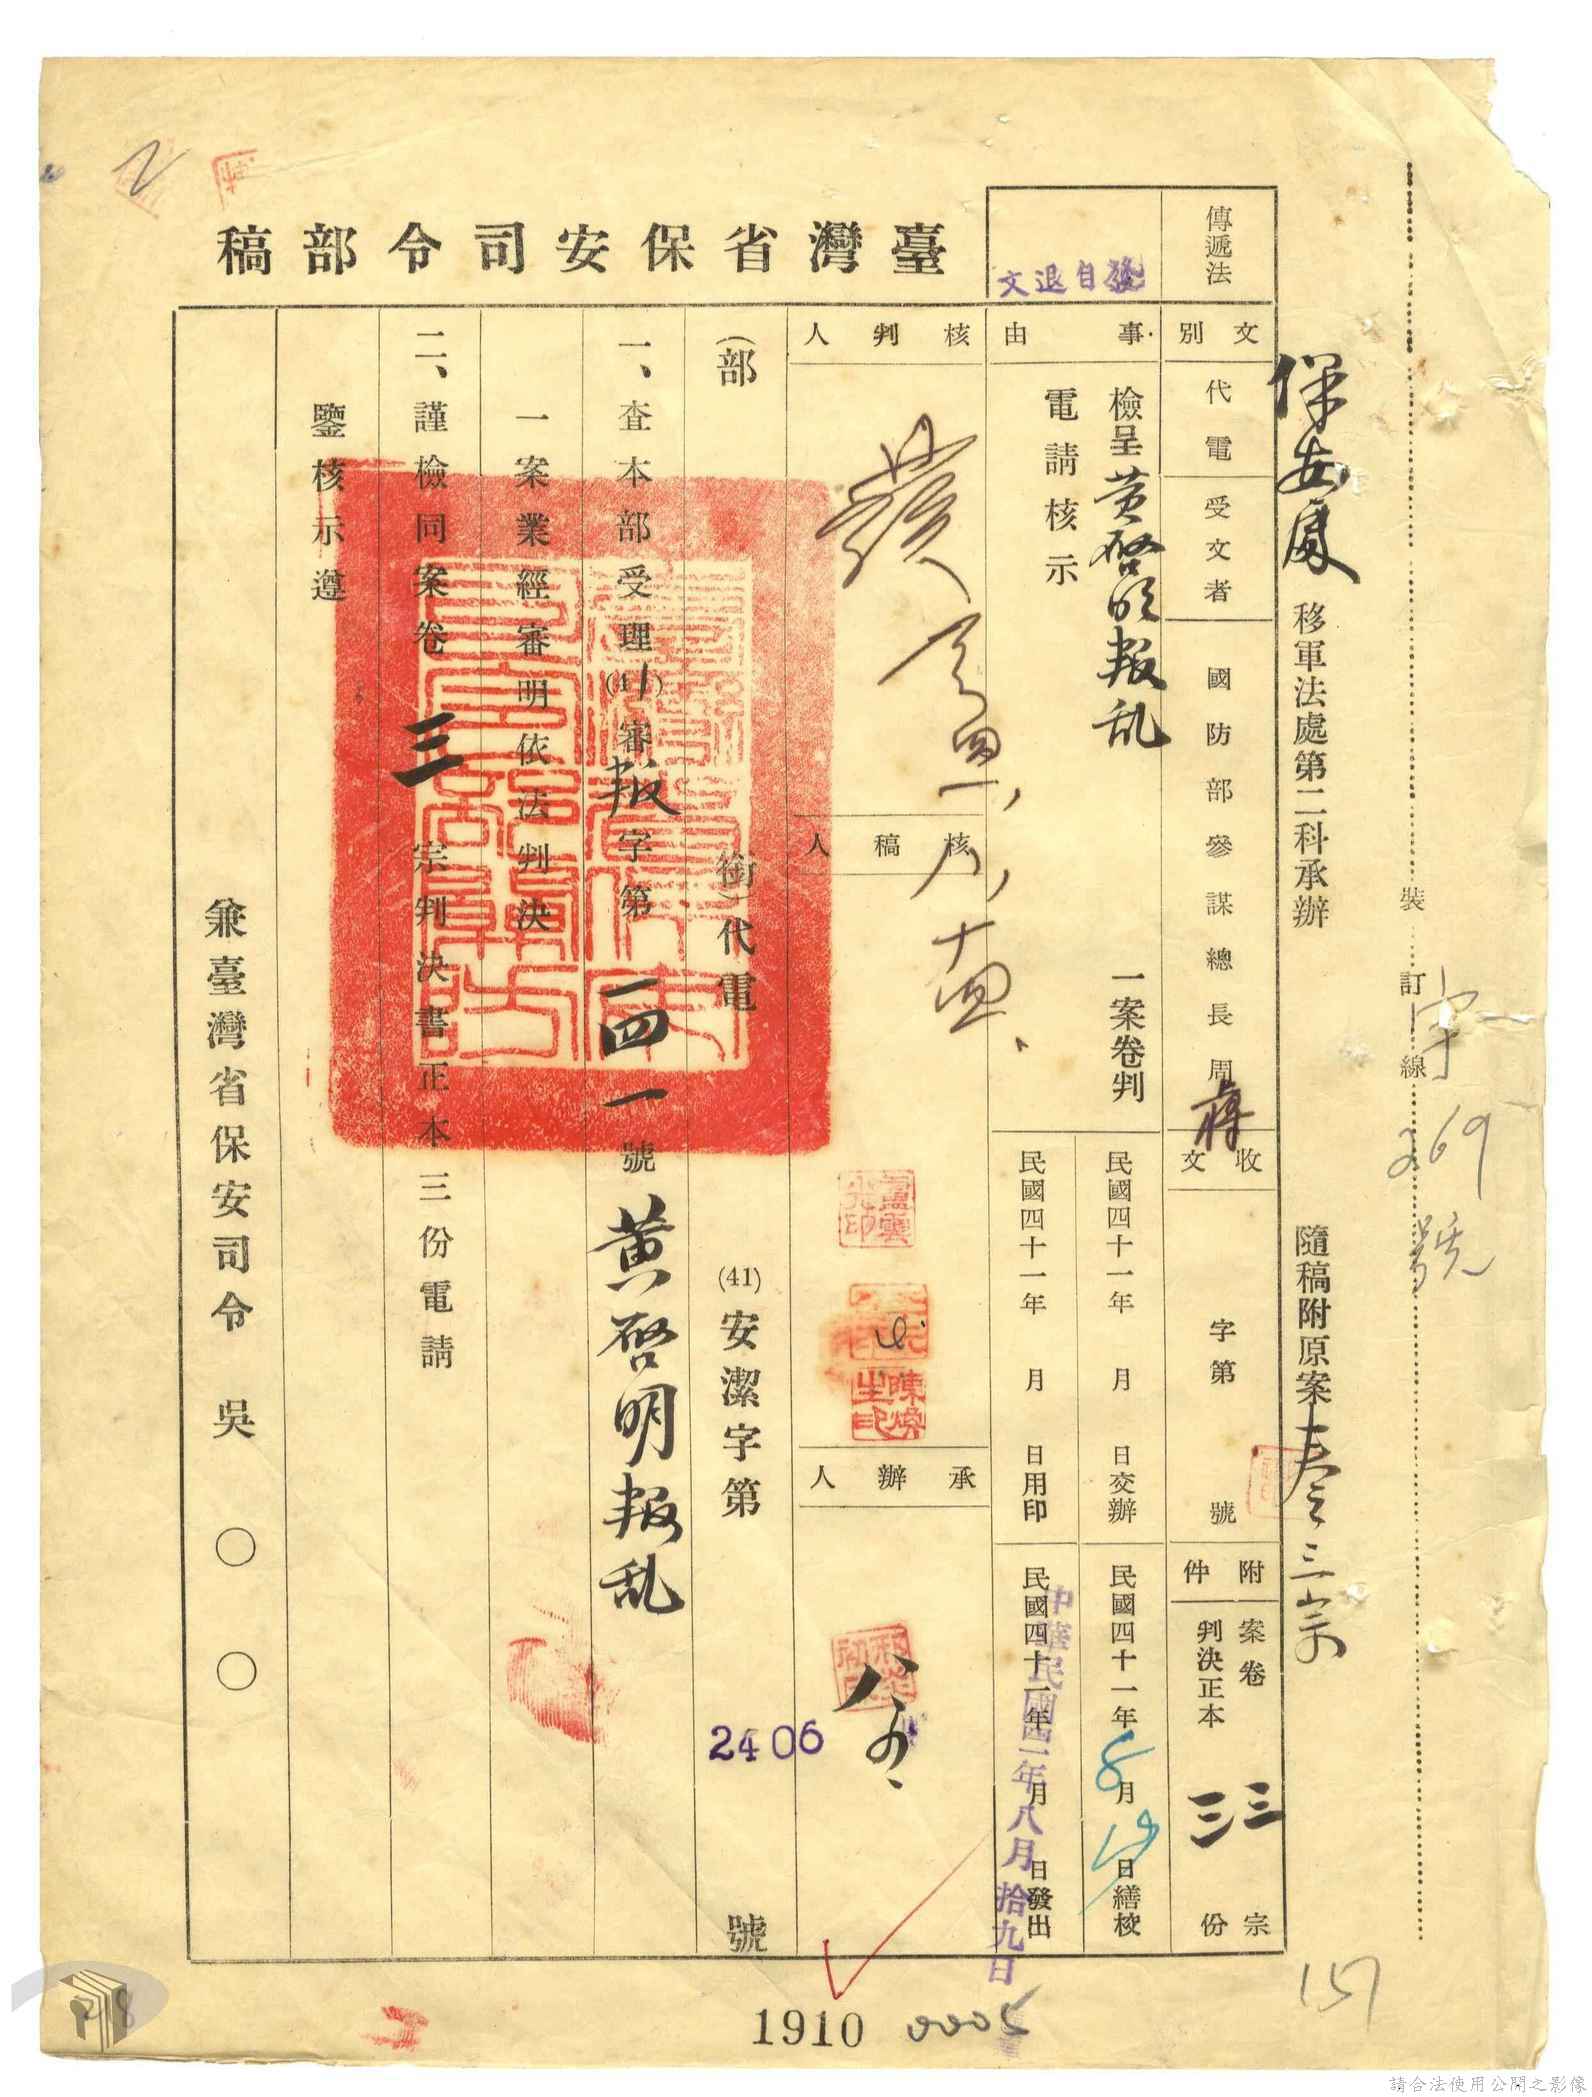 臺灣省保安司令部稿
傳遞法
發自退文
文別
代電
受文者
國防部參謀總長周
蔣
收文
字第
號
附件
案卷
三
宗
判決正本
三
份
事由
檢呈黃啓明叛乱
一案卷判
電請核示
民國四十一年
月
日交辦
民國四十一年8月
日繕校
民國四十一年
月
日用印
民國四十一年
月
日發出
中華民國四一年八月拾九日
核判人
核稿人
承辦人
八、十四、
(部
銜)代電
(41)安潔字第
2406
號
一、查本部受理(41)審叛字第一四一號黃啓明叛乱
一案業經審明依法判決
二、謹檢同案卷三宗判決書正本三份電請
鑒核示遵
兼臺灣省保安司令 吳〇〇
保安處 移軍法處第二科承辦
隨稿附原案卷三宗
裝
訂
線
字269號
157
1910
0005
2
28
請合法使用公開之影像